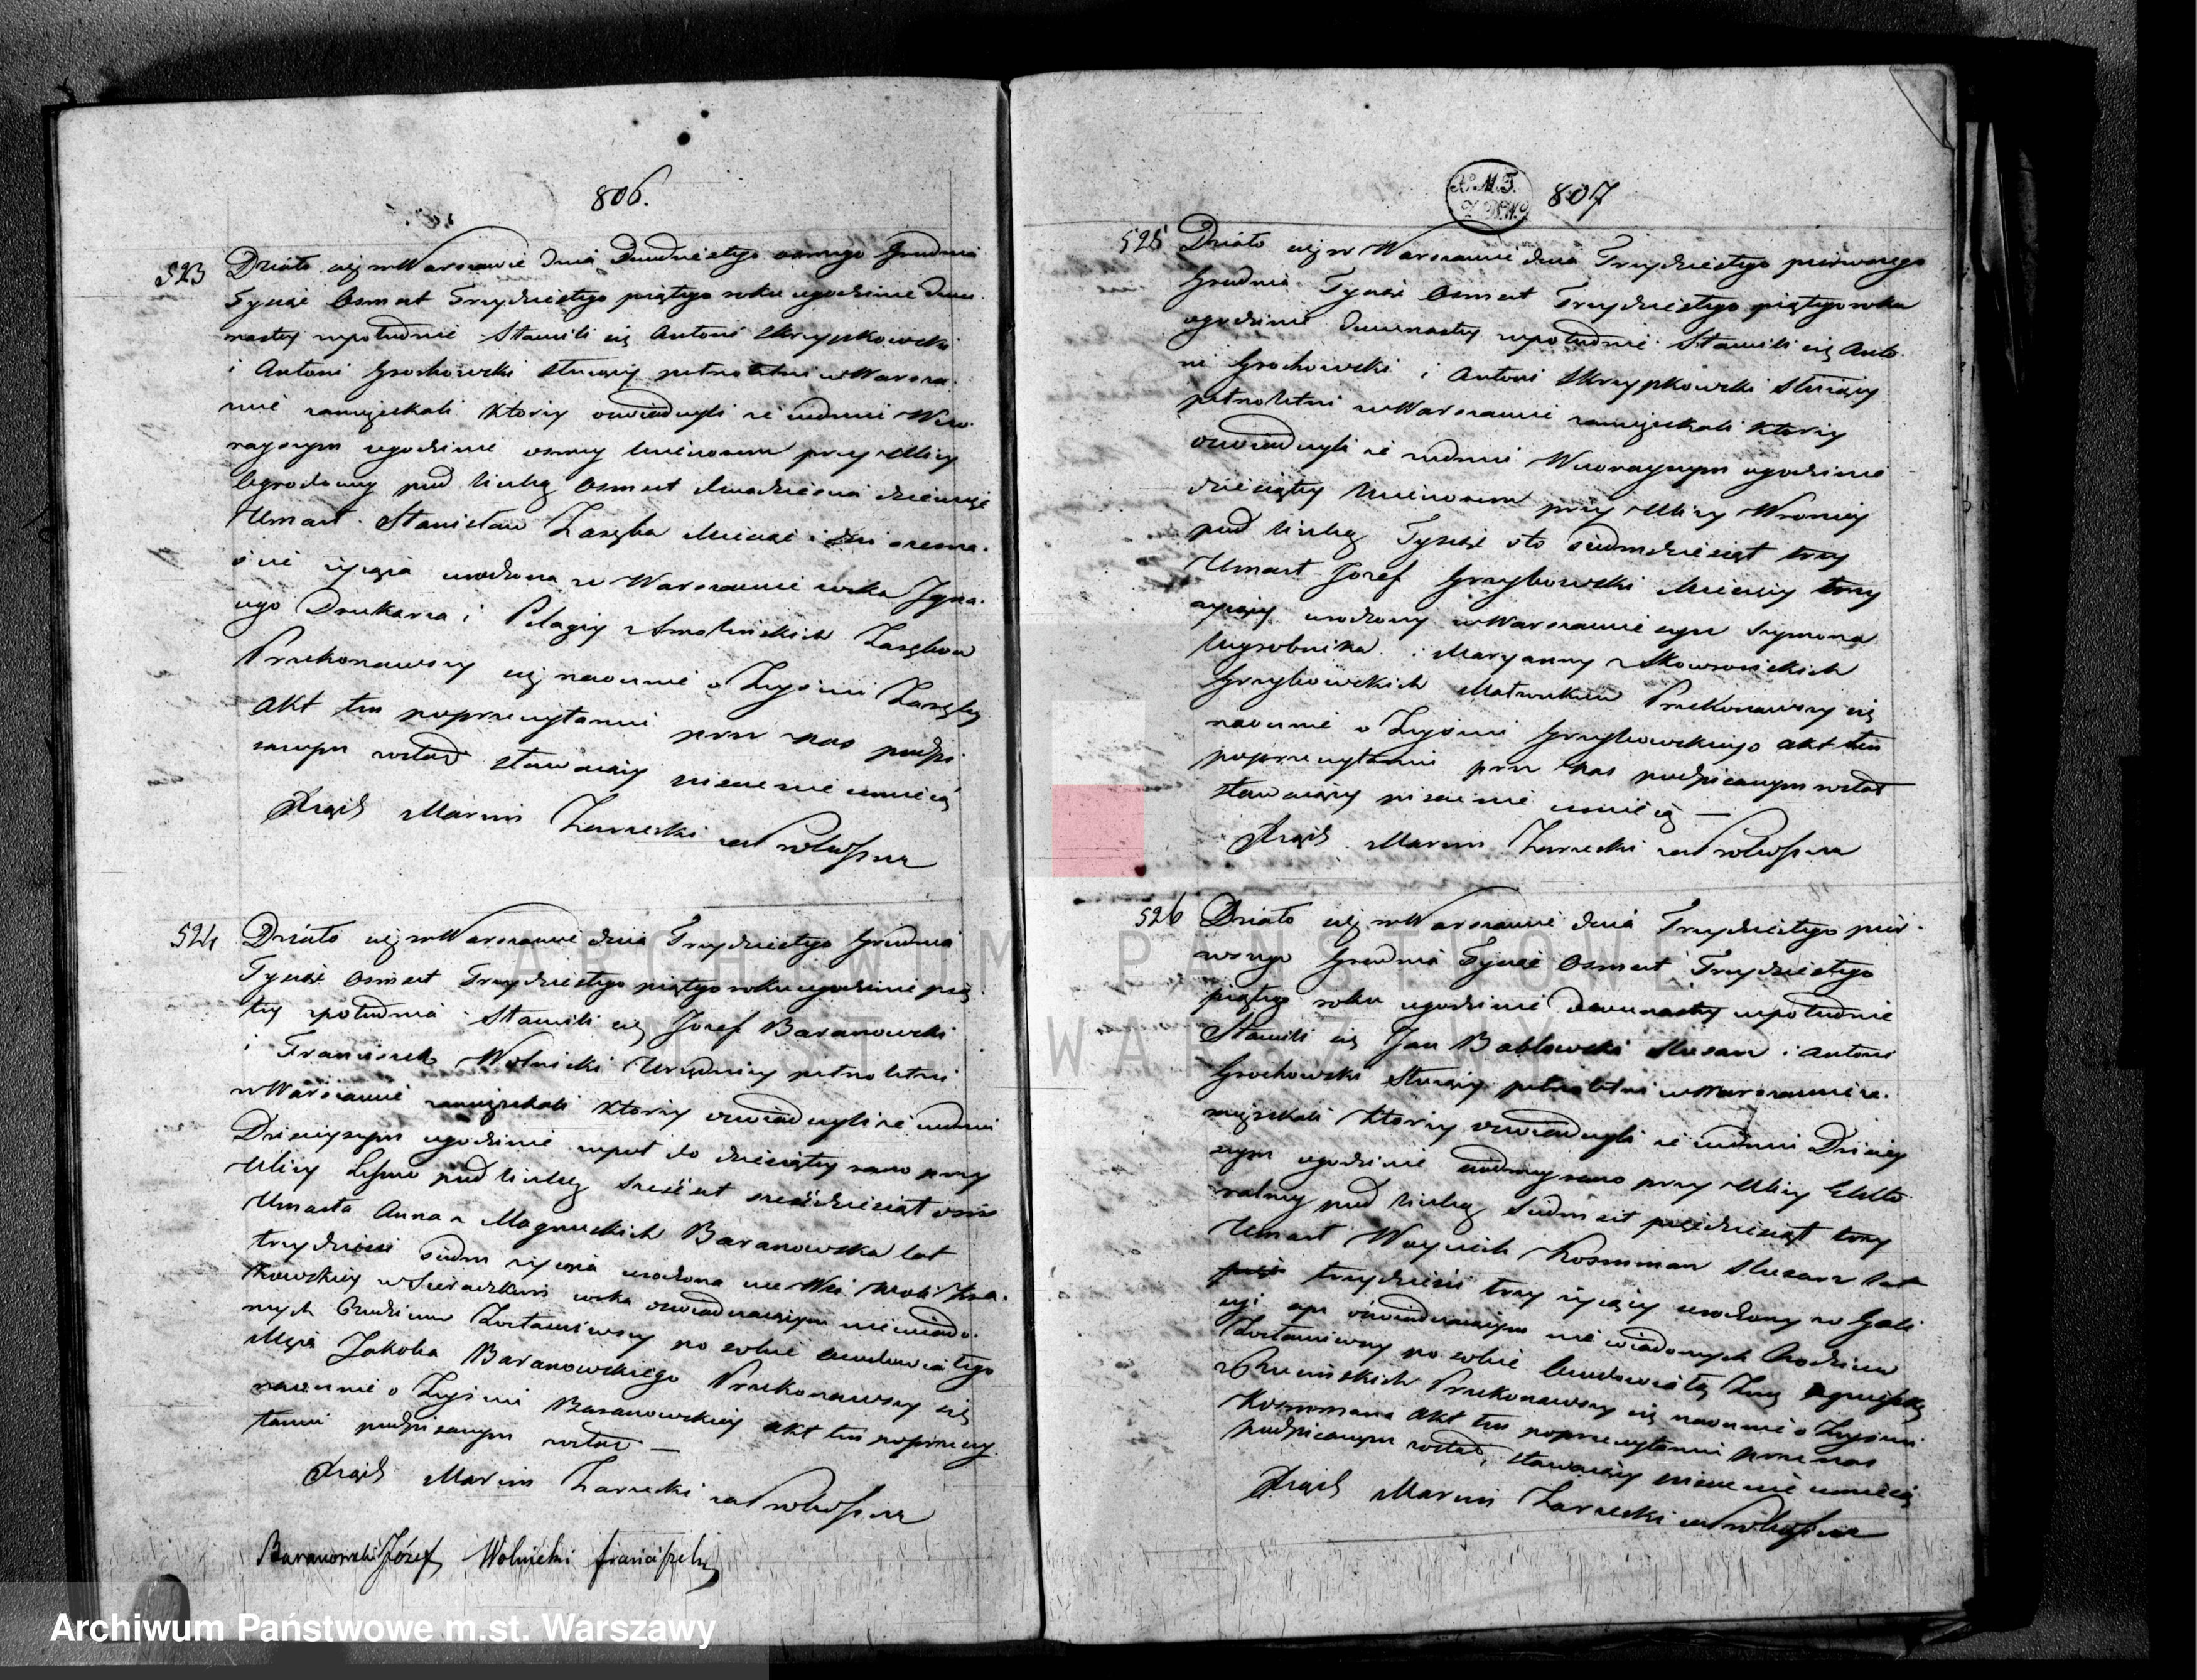 806.
523 Działo się w Warszawie dnia Dwudziestego osmego Grudnia
Tysiąc Osmset Trzydziestego piątego roku o godzinie dwu-
nastey w południe Stawili się Antoni Skrzypkowski
i Antoni Grochowski Służący pełnoletni w Warsza-
wie zamięszkali Ktorzy oswiadczyli iż w dniu Wczo-
rayszym o godzinie osmey wieczorem przy Ulicy
Ogrodowey pod liczbą Osmset dwadziescia dziewięć
Umarł Stanisław Zaręba Miesiąc i dni
życia w Warszawie Igna-
cego Drukarza i Pelagiy z Smolinskich Zarębow
Przekonawszy się naocznie o Zeysciu Zaręby
Akt ten po przeczytaniu przez nas podpi-
sanym został stawaiący pisać nie umieią
Xiądz Marcin Zarzecki za Proboszcza
524 Działo się w Warszawie dnia Trzydziestego Grudnia
Tysiąc Osmset Trzydziestego piątego roku o godzinie pią-
tey z południa Stawili się Jozef Baranowski
i Franciszek Wolnicki Urzędnicy pełnoletni
w Warszawie zamięszkali Ktorzy oswiadczyli iż w dniu
Dzisieyszym o godzinie wpoł do dziesiątey rano przy
Ulicy Leszno pod liczbą Szesćset szesćdziesiąt osm
Umarła Anna z Magnuckich Baranowska lat
trzydzieści siedm życia urodzona we Wsi Woli
w Sieradzkim oswiadczaiącym niewiado-
mych Rodzicow Zostawiwszy po sobie owdowiałego
Męża Jakoba Baranowskiego Przekonawszy się
naocznie o Zeysciu Baranowskiey akt ten po przeczy-
taniu podpisanym został —
Xiądz Marcin Zarzecki za Proboszcza
Baranowski Józef Wolnicki Franciszek
X. M. T.
807
525 Działo się w Warszawie dnia Trzydziestego pierwszego
Grudnia Tysiąc Osmset Trzydziestego piątego roku
o godzinie dwunastey w południe Stawili się Anto-
ni Grochowski i Antoni Skrzypkowski Służący
pełnoletni w Warszawie zamięszkali Ktorzy
oswiadczyli iż w dniu Wczorayszym o godzinie
dziesiątey Wieczorem przy Ulicy Wroniey
pod liczbą Tysiąc sto siedmdziesiąt trzy
Umarł Jozef Grzybowski Miesięcy trzy
urodzony w Warszawie syn Szymona
Wyrobnika i Maryanny z Skowronskich
Grzybowskich Małzonkow Przekonawszy się
naocznie o Zeysciu Grzybowskiego akt ten
po przeczytaniu przez nas podpisanym został
stawaiący pisać nie umieią —
Xiądz Marcin Zarzecki za Proboszcza
526 Działo się w Warszawie dnia Trzydziestego pier-
wszego Grudnia Tysiąc Osmset Trzydziestego
piątego roku o godzinie dwunastey w południe
Stawili się Jan Bablowski Slusarz i Antoni
Grochowski Służący pełnoletni w Warszawie za-
mięszkali Ktorzy oswiadczyli iż w dniu Dzisiey-
szym o godzinie siodmey rano przy Ulicy Elekto-
ralney pod liczbą Siedmset pięćdziesiąt trzy
Umarł Woyciech Kossman Slusarz lat
trzydzieści trzy życiący urodzony w Gali-
cyi oswiadczaiącym nie wiadomych Rodzicow
Zostawiwszy po sobie owdowiałą Zonę Agnieszkę
Przekonawszy się naocznie o Zeysciu
Kossmana Akt ten po przeczytaniu przez nas
podpisanym został, stawaiący pisać nie umieią
Xiądz Marcin Zarzecki za Proboszcza
ARCHIWUM PAŃSTWOWE
M.ST. WARSZAWY
Archiwum Państwowe m.st. Warszawy